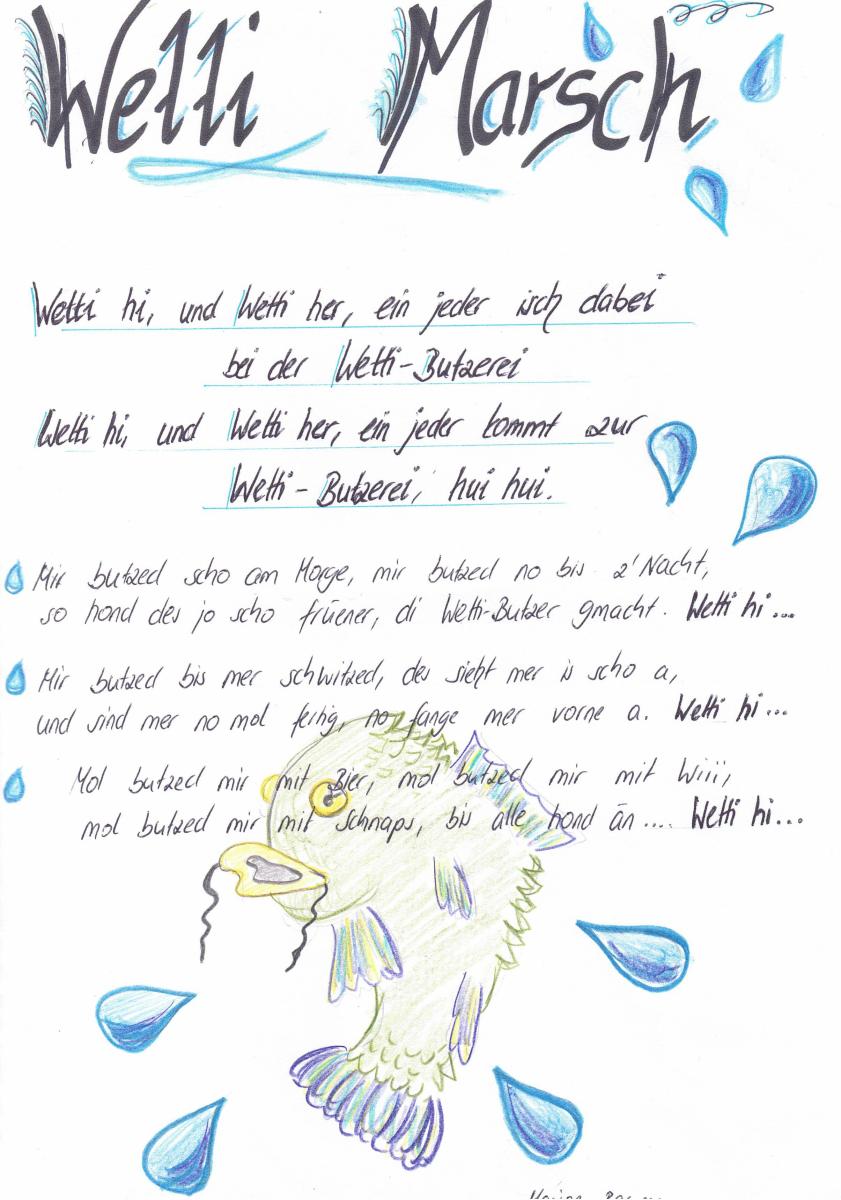 Wetti Marsch
Wetti hi, und Wetti her, ein jeder isch dabei
bei der Wetti-Butzerei
Wetti hi, und Wetti her, ein jeder kommt zur
Wetti-Butzerei, hui hui.
Mir butzed scho am Morge, mir butzed no bis z'Nacht,
so hond des jo scho früener, di Wetti-Butzer gmacht. Wetti hi...
Mir butzed bis mer schwitzed, des sieht mer is scho a,
und sind mer no mol fertig, no fange mer vorne a. Wetti hi...
Mol butzed mir mit Bier, mol butzed mir mit Wiii,
mol butzed mir mit Schnaps, bis alle hond än.... Wetti hi...